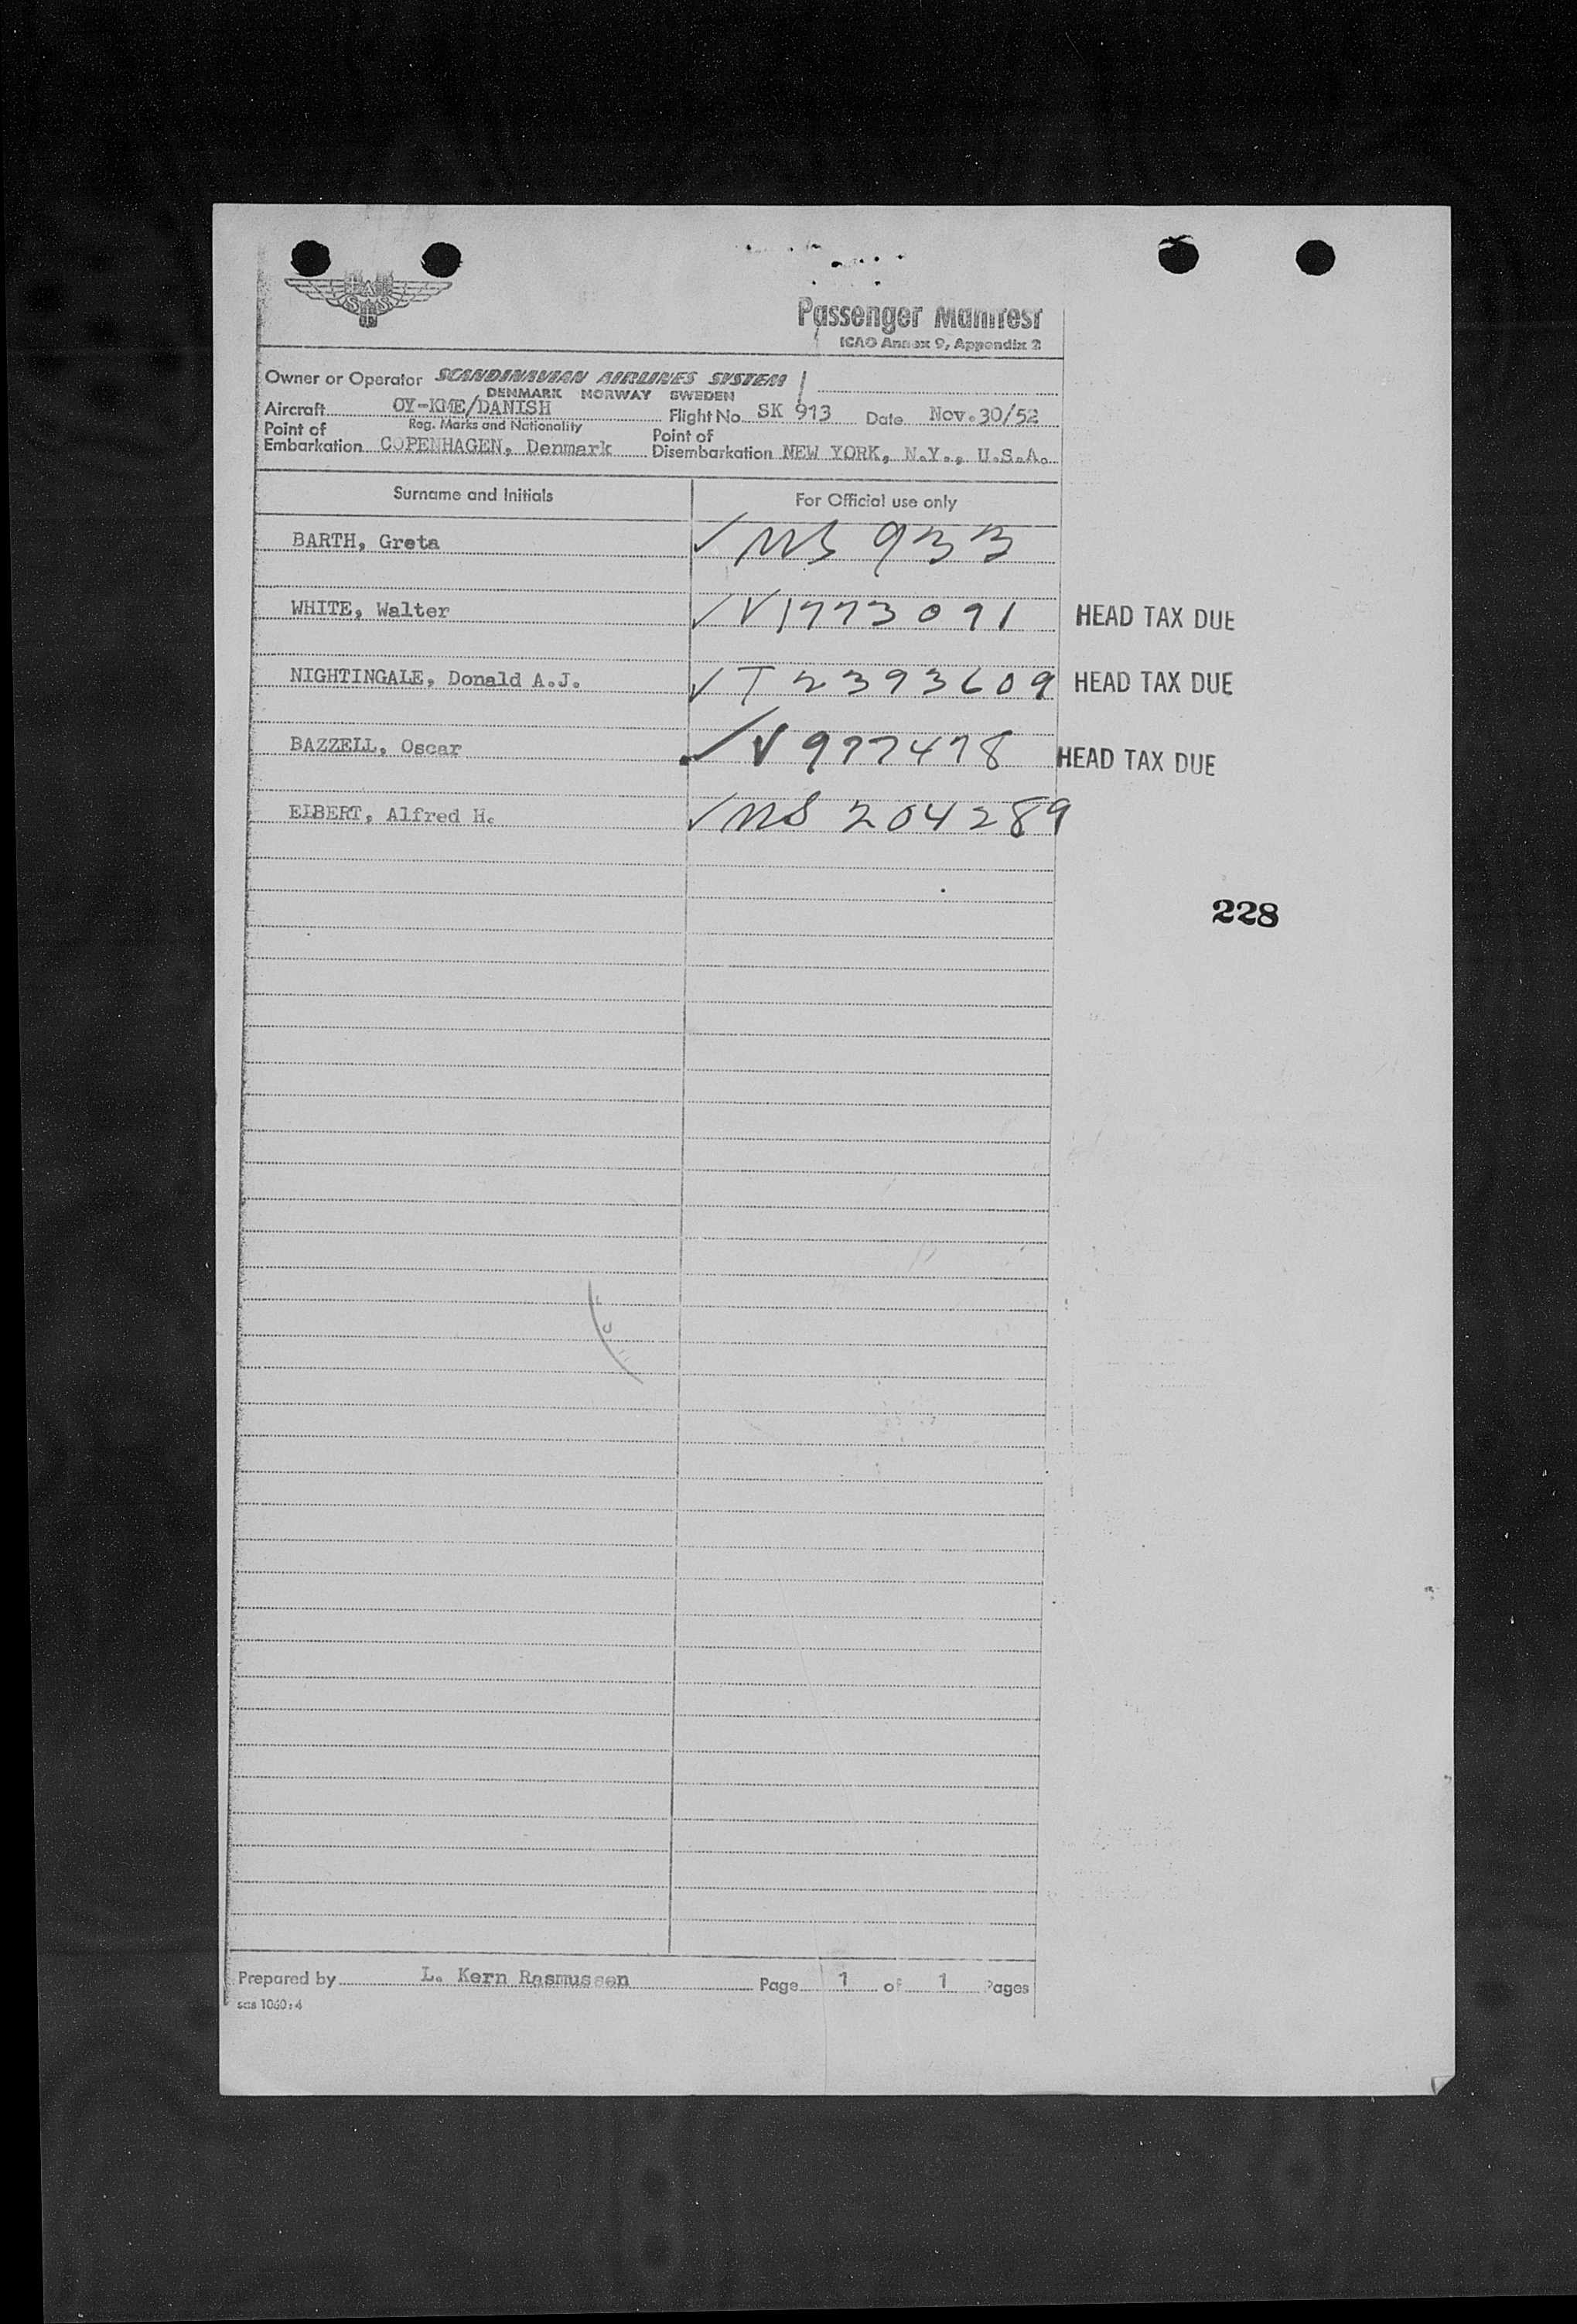 SAS
Passenger Manifest
ICAO Annex 9, Appendix 2
Owner or Operator SCANDINAVIAN AIRLINES SYSTEM
DENMARK NORWAY SWEDEN
Aircraft OY-KME/DANISH Flight No. SK 913 Date Nov.30/52
Reg. Marks and Nationality
Point of Embarkation COPENHAGEN, Denmark Point of Disembarkation NEW YORK, N.Y., U.S.A.
Surname and Initials For Official use only
BARTH, Greta ✓ 933
WHITE, Walter ✓ V1773091 HEAD TAX DUE
NIGHTINGALE, Donald A.J. ✓ T 2393609 HEAD TAX DUE
BAZZELL, Oscar ✓ V 977478 HEAD TAX DUE
EIBERT, Alfred H. ✓ 204289
228
Prepared by L. Kern Rasmussen Page 1 of 1 Pages
sas 1060:4